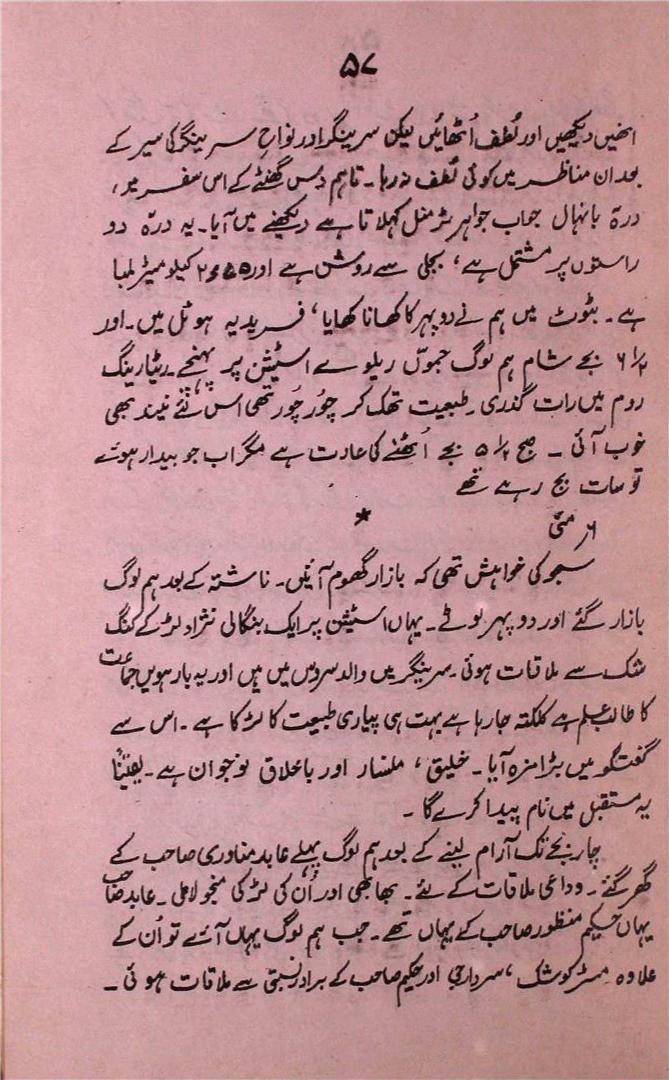 ۵۷
انھیں دیکھیں اور لُطف اُٹھائیں لیکن سرینگر اور نواحِ سرینگر کی سیر کے
بعد ان مناظر میں کوئی لُطف نہ رہا۔ تاہم دس گھنٹے کے اس سفر میں،
درّۃ بانہال جواب جواہر ٹنل کہلاتا ہے دیکھنے میں آیا۔ یہ درّہ دو
راستوں پر مشتمل ہے، بجلی سے روشن ہے اور کیلو میٹر لمبا
ہے۔ بٹوٹ میں ہم نے دوپہر کا کھانا کھایا، فریدیہ ہوٹل میں۔ اور
۶ ۱/۲ بجے شام ہم لوگ جموّں ریلوے اسٹیشن پر پہنچے۔ ریٹائرینگ
روم میں رات گذری۔ طبیعت تھک کر چوُر چوُر تھی اس لئے نیند بھی
خوب آئی۔ صبح ۵ ۱/۲ بجے اُٹھنے کی عادت ہے مگر اب جو بیدار ہوئے
تو سات بج رہے تھے
*
۶ر مئی
سجو کی خواہش تھی کہ بازار گھوم آئیں۔ ناشتہ کے بعد ہم لوگ
بازار گئے اور دوپہر لوٹے۔ یہاں اسٹیشن پر ایک بنگالی نژاد لڑکے کنگ
شک سے ملاقات ہوئی۔ سرینگر میں والد سروس میں ہیں اور یہ بارہویں جماعت
کا طالب علم ہے کلکتہ جارہا ہے بہت ہی پیاری طبیعت کا لڑکا ہے۔ اس سے
گفتگو میں بڑا مزہ آیا۔ خلیق، ملنسار اور باخلاق نوجوان ہے۔ یقیناً
یہ مستقبل میں نام پیدا کرے گا۔
چار بجے تک آرام لینے کے بعد ہم لوگ پہلے عابد مناوری صاحب کے
گھر گئے۔ وداعی ملاقات کے لئے۔ بھابھی اور اُن کی لڑکی منجو لا ملی۔ عابد صاحب
یہاں حکیم منظور صاحب کے یہاں تھے۔ جب ہم لوگ یہاں آئے تو اُن کے
علاوہ مسٹر کوشک، سردارجی اور حکیم صاحب کے برادر نسبتی سے ملاقات ہوئی۔